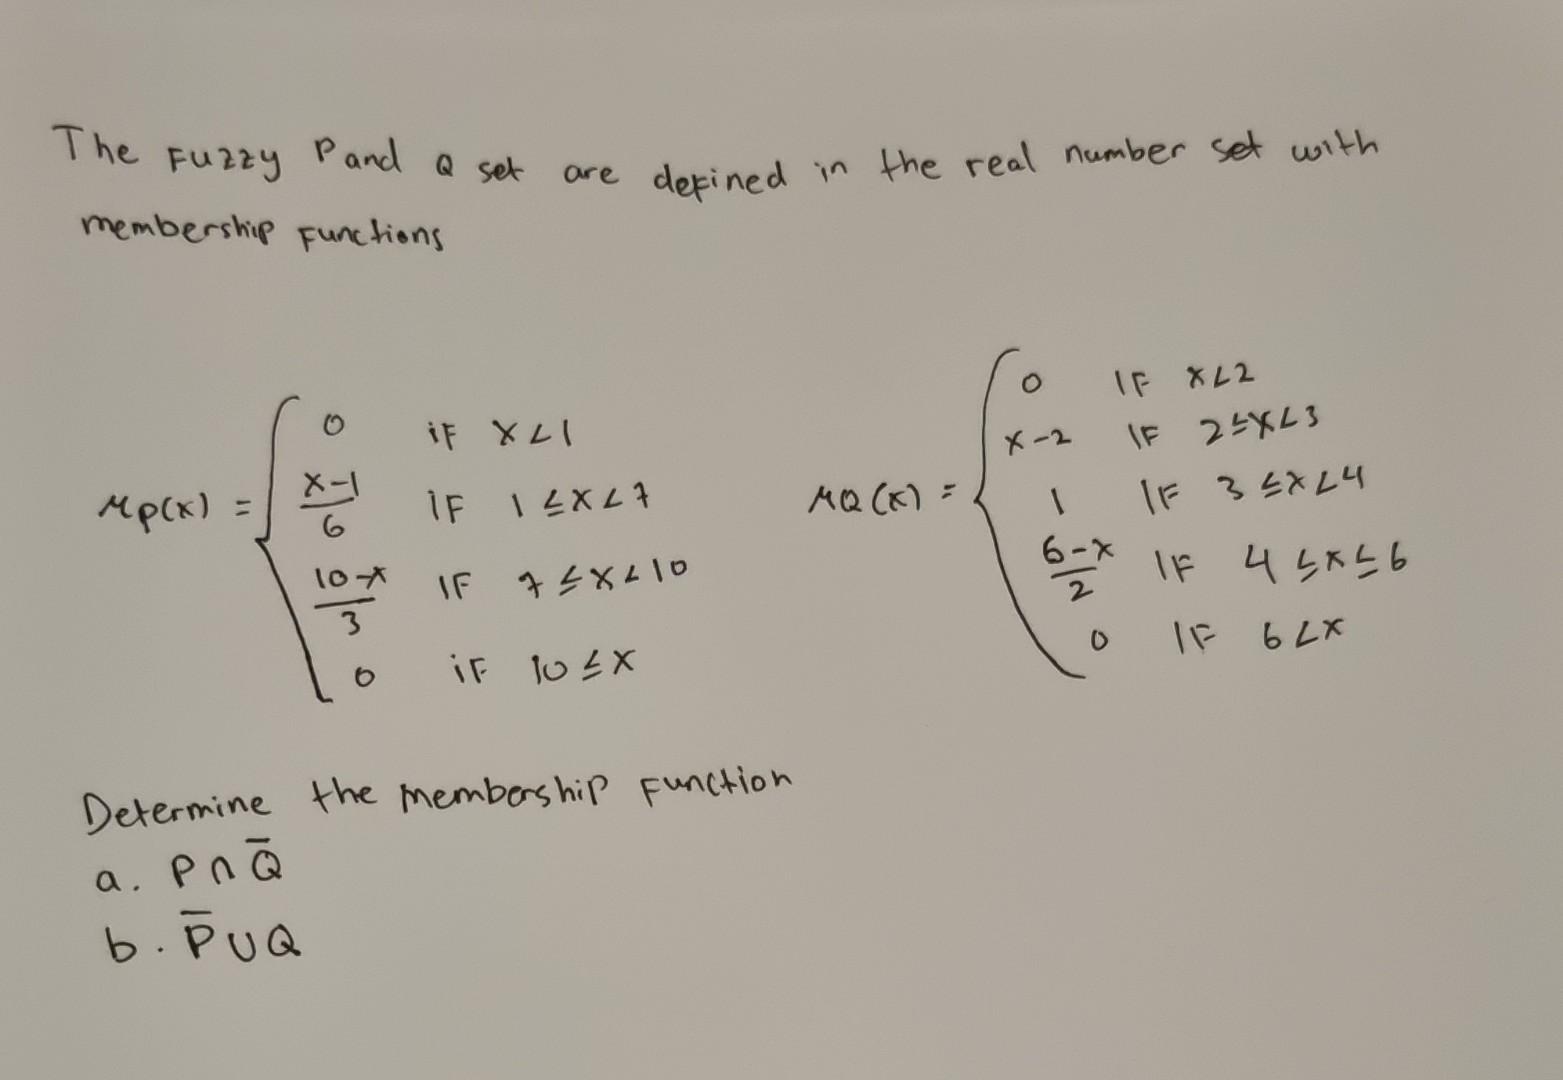 The Fuzzy P and Q set are defined in the real number set with
membership Functions
μp(x) = { 0 if x<1
x-1/6 if 1≤x<7
10-x/3 IF 7≤x<10
0 if 10≤x
μQ(x) = { 0 IF x<2
x-2 IF 2≤x<3
1 IF 3≤x<4
6-x/2 IF 4≤x≤6
0 IF 6<x
Determine the membership Function
a. P∩Q̅
b. P̅∪Q